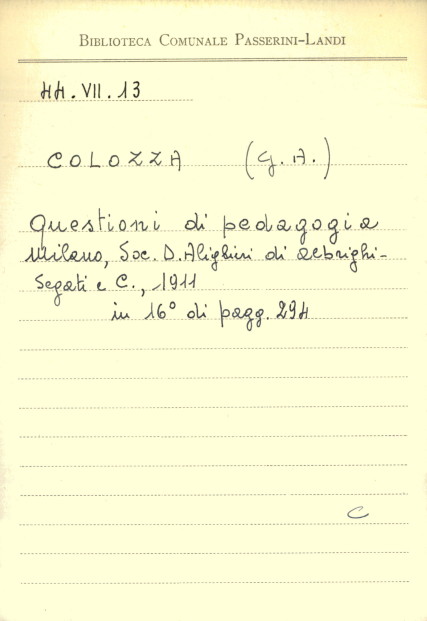 BIBLIOTECA COMUNALE PASSERINI-LANDI
HH.VII.13
COLOZZA (G.A.)
Questioni di pedagogia
Milano, Soc. D. Alighieri di Albrighi-
Segati e C., 1911
in 16° di pagg. 294
C